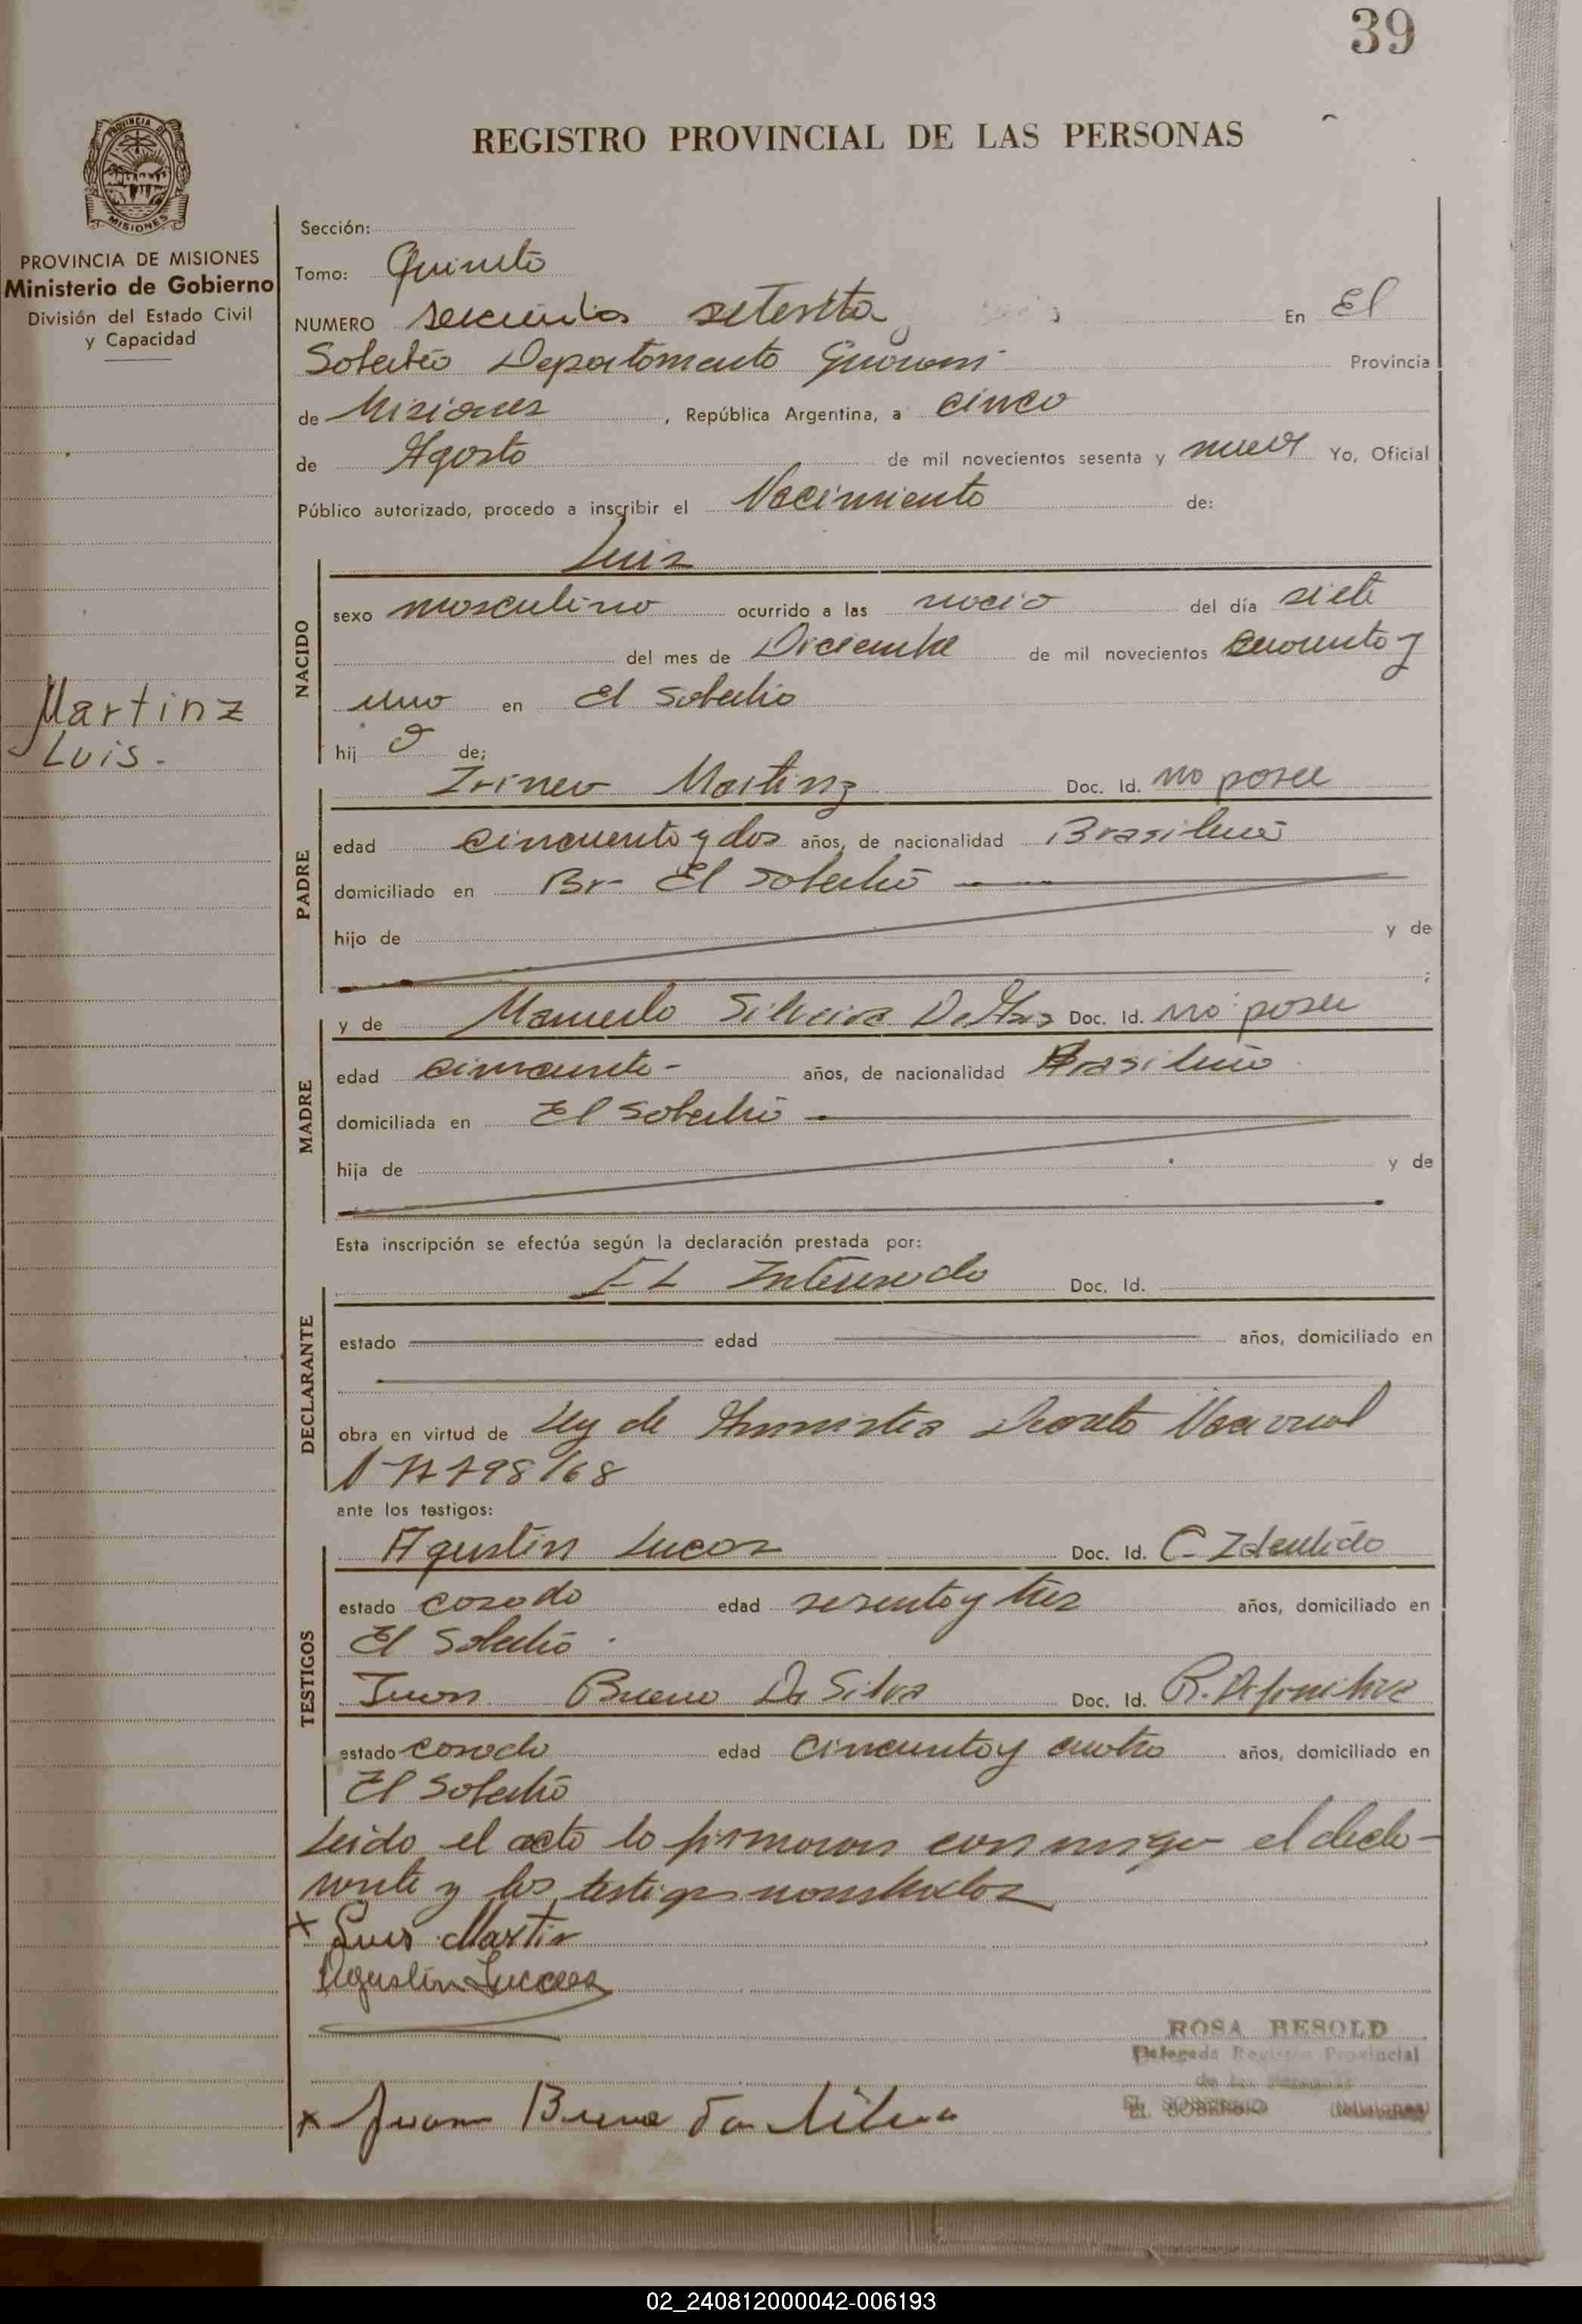 39
REGISTRO PROVINCIAL DE LAS PERSONAS
PROVINCIA DE MISIONES
PROVINCIA DE MISIONES
Ministerio de Gobierno
División del Estado Civil
y Capacidad
Martinz
Luis.
Sección:
Tomo: Quinto
NUMERO seiscientos setenta En El
Soberbio Departamento Guarani Provincia
de Misiones, República Argentina, a cinco
de Agosto de mil novecientos sesenta y nueve Yo, Oficial
Público autorizado, procedo a inscribir el Nacimiento de:
Luis
NACIDO
sexo masculino ocurrido a las del día siete
del mes de Diciembre de mil novecientos cuarenta y
uno en El Soberbio
hij o de;
PADRE
Irineo Martinz Doc. Id. no posee
edad cincuenta y dos años, de nacionalidad Brasilera
domiciliado en Br- El Soberbio
hijo de y de
;
MADRE
y de Manuela Silveira Doc. Id. no posee
edad cincuenta- años, de nacionalidad Brasilera
domiciliada en El Soberbio
hija de y de
Esta inscripción se efectúa según la declaración prestada por:
DECLARANTE
El Interesado Doc. Id.
estado edad años, domiciliado en
obra en virtud de Ley de Amnistia Decreto Nacional
798/68
ante los testigos:
TESTIGOS
Agustin Lucas Doc. Id. C- Identidad
estado casado edad sesenta y tres años, domiciliado en
El Soberbio
Juan Bueno Da Silva Doc. Id. R. Definitiva
estado casado edad cincuenta y cuatro años, domiciliado en
El Soberbio
Leido el acta lo firmaron conmigo el decla-
rante y los testigos nombrados
x Luis Martin
Agustin Luccas
x Juam Bueno da Silva
ROSA RESOLD
Delegada Registro Provincial
de las Personas
EL SOBERBIO (Misiones)
02_240812000042-006193